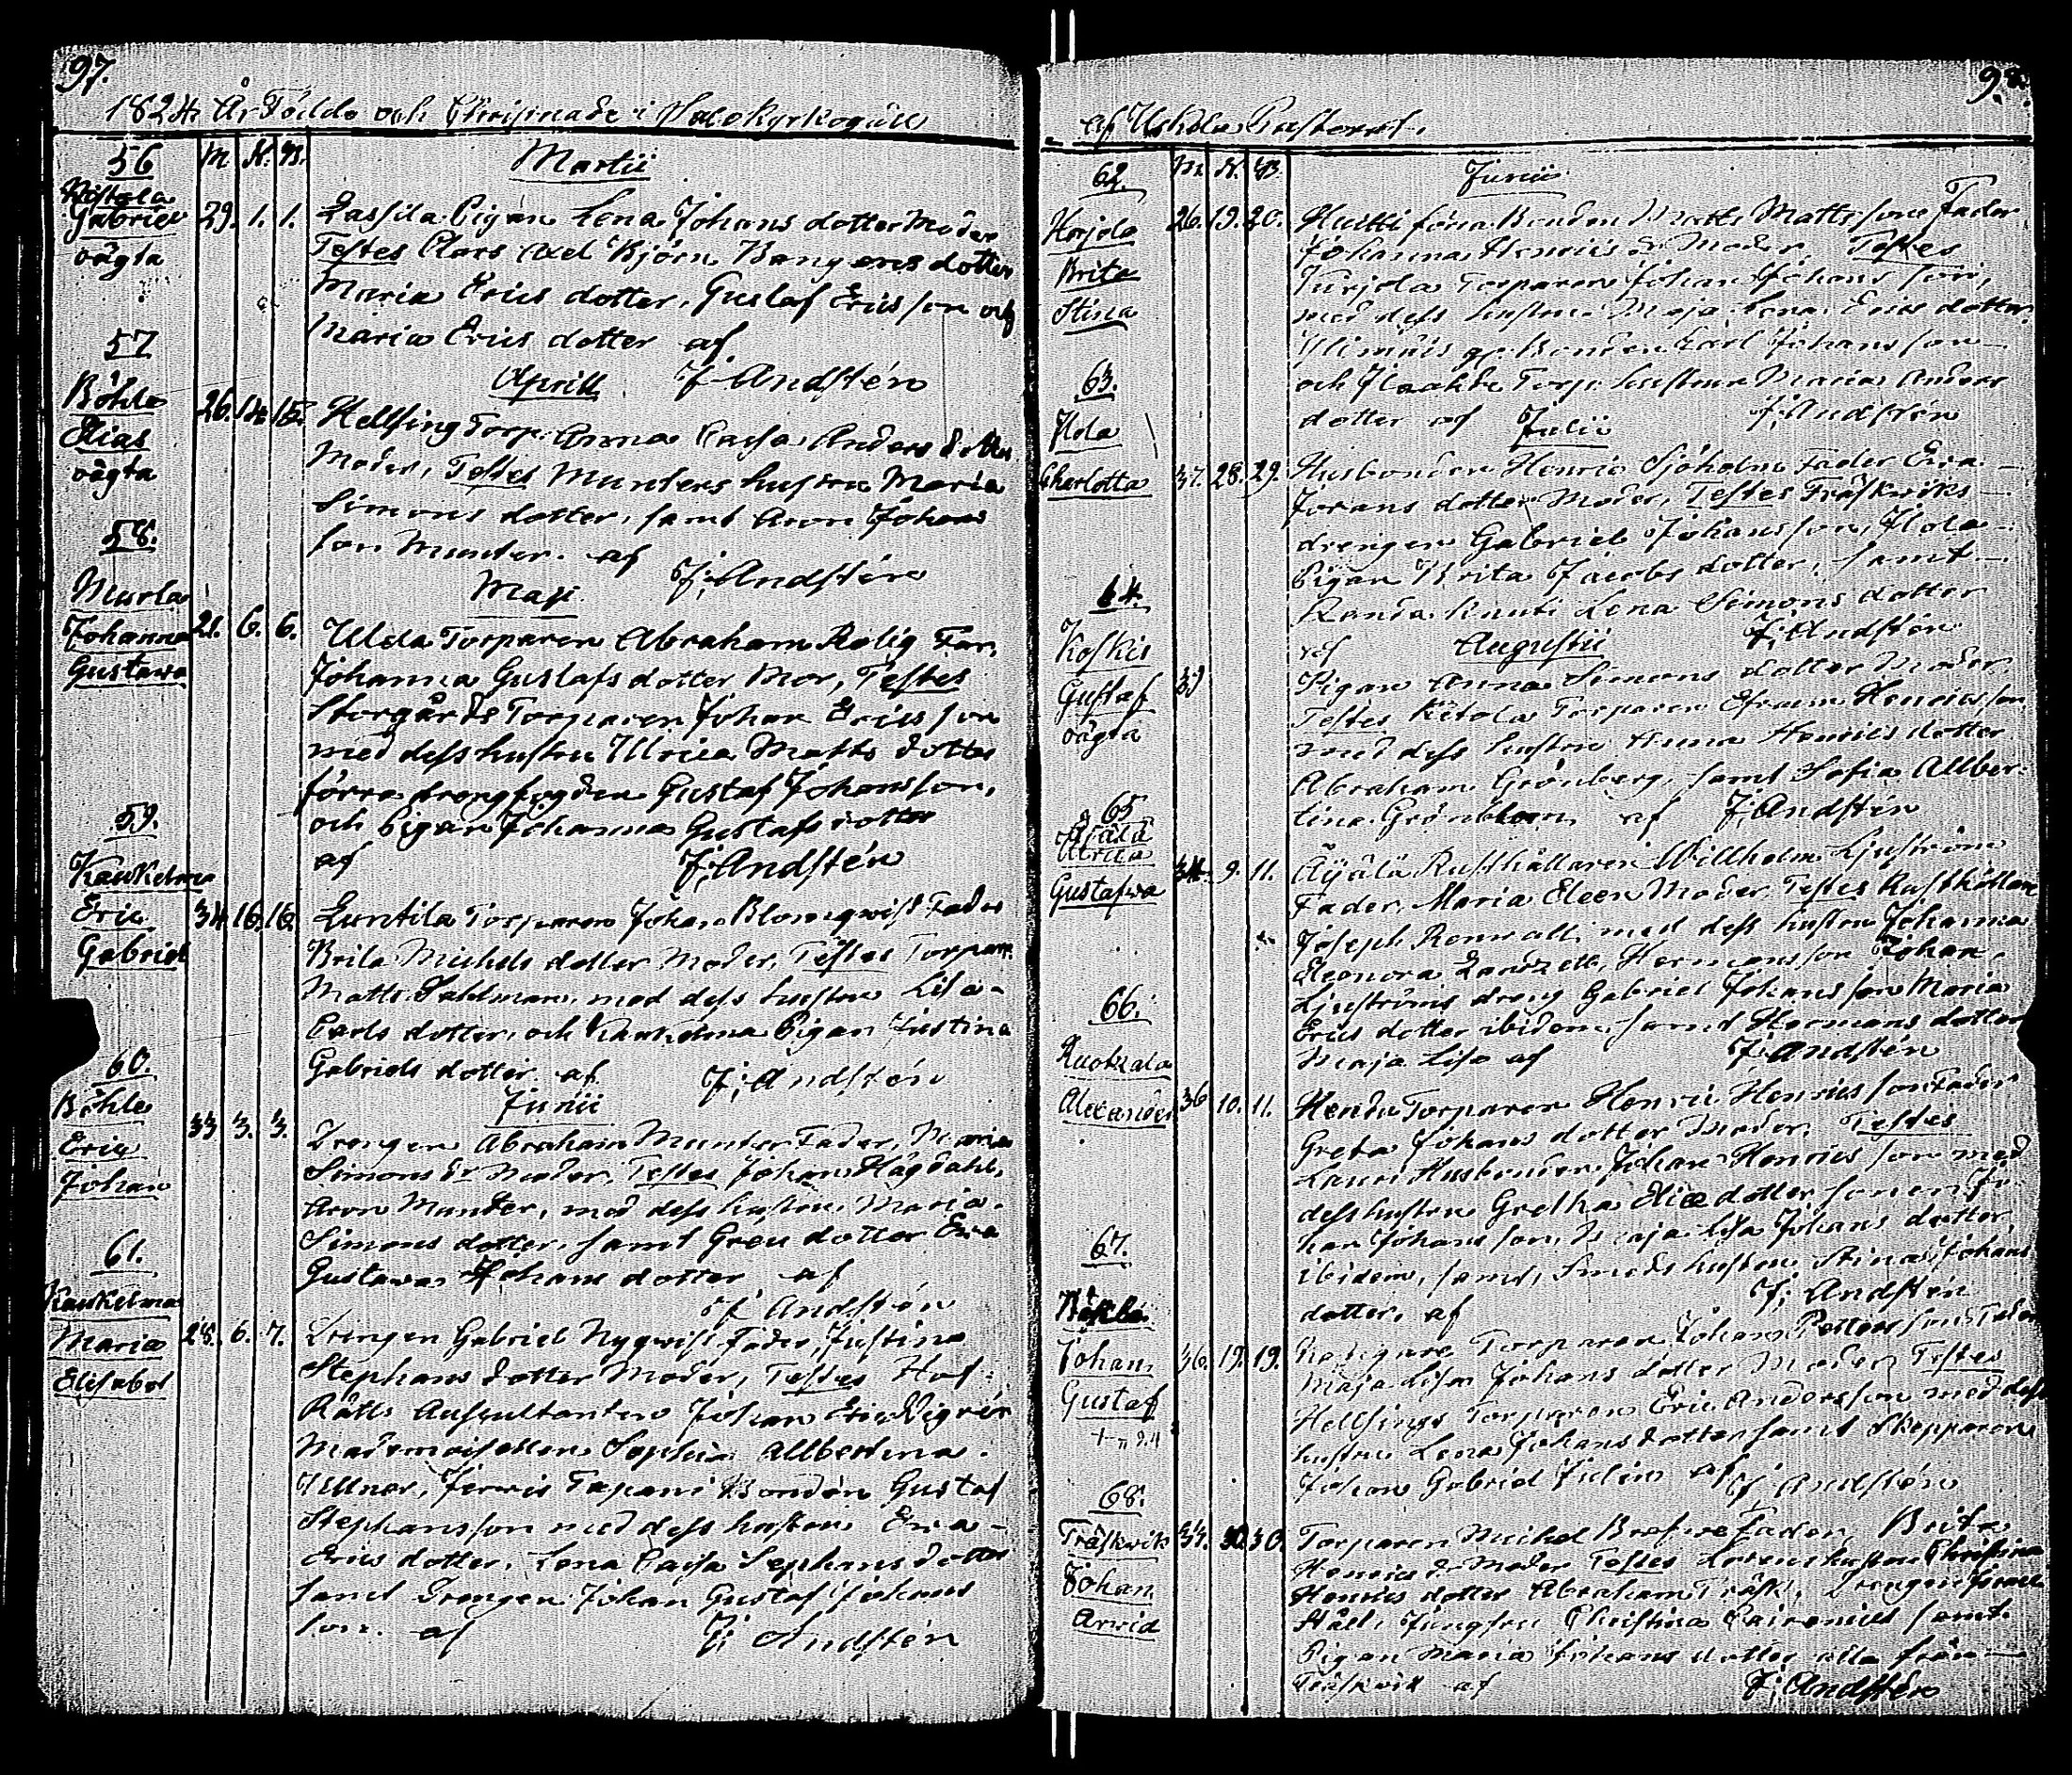 97.
1824 År Födde och Christnade i Halckyrkogäll
56 M. N. B. Martii
Ristola
Gabriel 29. 1. 1. Lassila Pigan Lena Johans dotter Moder
oägta Testes Clars Axel Björn Bang eris dotter
Maria Erics dotter, Gustaf Ericsson och
Maria Erics dotter af
J Andstén
57 Aprill
Böhle 26. 14. 15. Hellsing Torp. Anna Caisa Anders dotter
Elias Moder, Testes Munters hustru Maria
oägta Simons dotter, samt Aron Johans
son Munter. af J; Andstén
58. Maji
Murla
Johanna 21. 6. 6. Ulda Torparen Abraham Rolig Far,
Gustava Johanna Gustafs dotter Mor, Testes
Storgårds Torparen Johan Ericsson
med dess hustru Ulrica Matts dotter
förra drengfogden Gustaf Johansson,
och Pigan Johanna Gustafs dotter
af J; Andstén
59.
Kaukelma
Eric 34. 16. 16. Luntila Torparen Johan Blomqwist Fader
Gabriel Brita Michels dotter Moder, Testes Torparen
Matts Dahlman, med dess hustru Lisa
Carls dotter, och Kaukelma Pigan Justina
Gabriels dotter af J; Andstén
60. Junii
Böhle
Eric 33 3. 3. Drengen Abraham Munter Fader, Maria
Johan Simons dr Moder, Testes Johan Hägdahl,
Aron Munter, med dess hustru Maria
Simons dotter, samt Greu dotter Eva
Gustava Johans dotter af
J Andstén
61.
Kaukelma
Maria 28. 6. 7. Drengen Gabriel Nyqwist Fader, Justina
Elisabet Stephans dotter Moder, Testes Hof
Rätts Auscultanten Johan Eric Vigrén
Mademoisellen Sophia Allbertina
Illner, Jervis Tapani Bonden Gustaf
Stephansson med dess hustru Eva
Erics dotter, Lena Caisa Stephans dotter
samt Drengen Johan Gustaf Johans
son. af J; Andstén
98.
af Uskela Pastorat.
62. M. N. B. Junii
Horjola 26. 19. 20. Huitti förra Bonden Matts Mattsson Fader
Brita Johanna Henrics dr Moder, Testes
Stina Kurjola Torparen Johan Johansson,
med dess hustru Maja Lena Erics dotter,
Bonden Carl Johansson
och Torp. hustrun Maria Anders
dotter af J; Andstén
63. Julii
Isola
Charlotta 37. 28. 29. Husbonden Henric Sjöholm Fader Eva
Jörans dotter Moder, Testes Träskwiks
drengen Gabriel Johansson, Isola
Pigan Brita Jacobs dotter, samt
Randa Knuti Lena Simons dotter
af J; Andstén
64. Augustii
Koskis
Gustaf 39 Pigan Anna Simons dotter Moder
oägta Testes Ketola Torparen Efraim Henricsson
med dess hustru Anna Henrics dotter
Abraham Grönberg, samt Sofia Allber
tina Grönblom af J; Andstén
65
Äijälä
Ulrica
Gustafwa 34. 9. 11. Äijälä Rusthållaren Willhelm Ljuström
Fader, Maria Eleen Moder Testes Rusthållaren
Joseph Renwall, med dess hustru Johanna
Eleonora Landzett, Hermansson Johan,
Ljuströms dreng Gabriel Johansson Maria
Erics dotter ibidem, samt Hermans dotter
Maja Lisa af J; Andstén
66.
Ruokala
Alexander 36 10. 11. Hendu Torparen Henric Henricsson Fader
Greta Johans dotter Moder. Testes
Lauri Husbonden Johan Henricsson med
dess hustru Gretha Elice dotter sonen Jo
han Johansson, Maja Lisa Johans dotter,
ibidem, samt, Smeds hustrun Stina Johans
dotter, af J; Andstén
67.
Böhle
Johan 36. 19. 19. Torparen Johan Pettersson Fader
Gustaf Maja Lisa Johans dotter Moder, Testes
Hellsings Torparen Eric Andersson med dess
hustru Lena Johans dotter samt Skepparen
Johan Gabriel Julin af J Andstén
68.
Träskwik 34. 30. 30. Torparen Michel Brefwe Fader, Brita
Johan Henrics dr Moder Testes hustru Christina
Arvid Henrics dotter Abraham Träsk, Drengen Israel
Häll, Jungfru Christina Cairenius samt
Pigan Maria Johans dotter alla från
Träskwik af J; Andstén